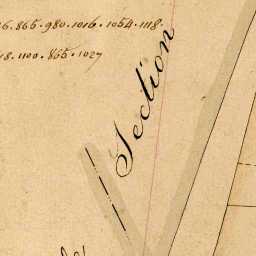 865 . 980 . 1016 . 1054 . 1118 .
1100 . 865 . 1027
Section